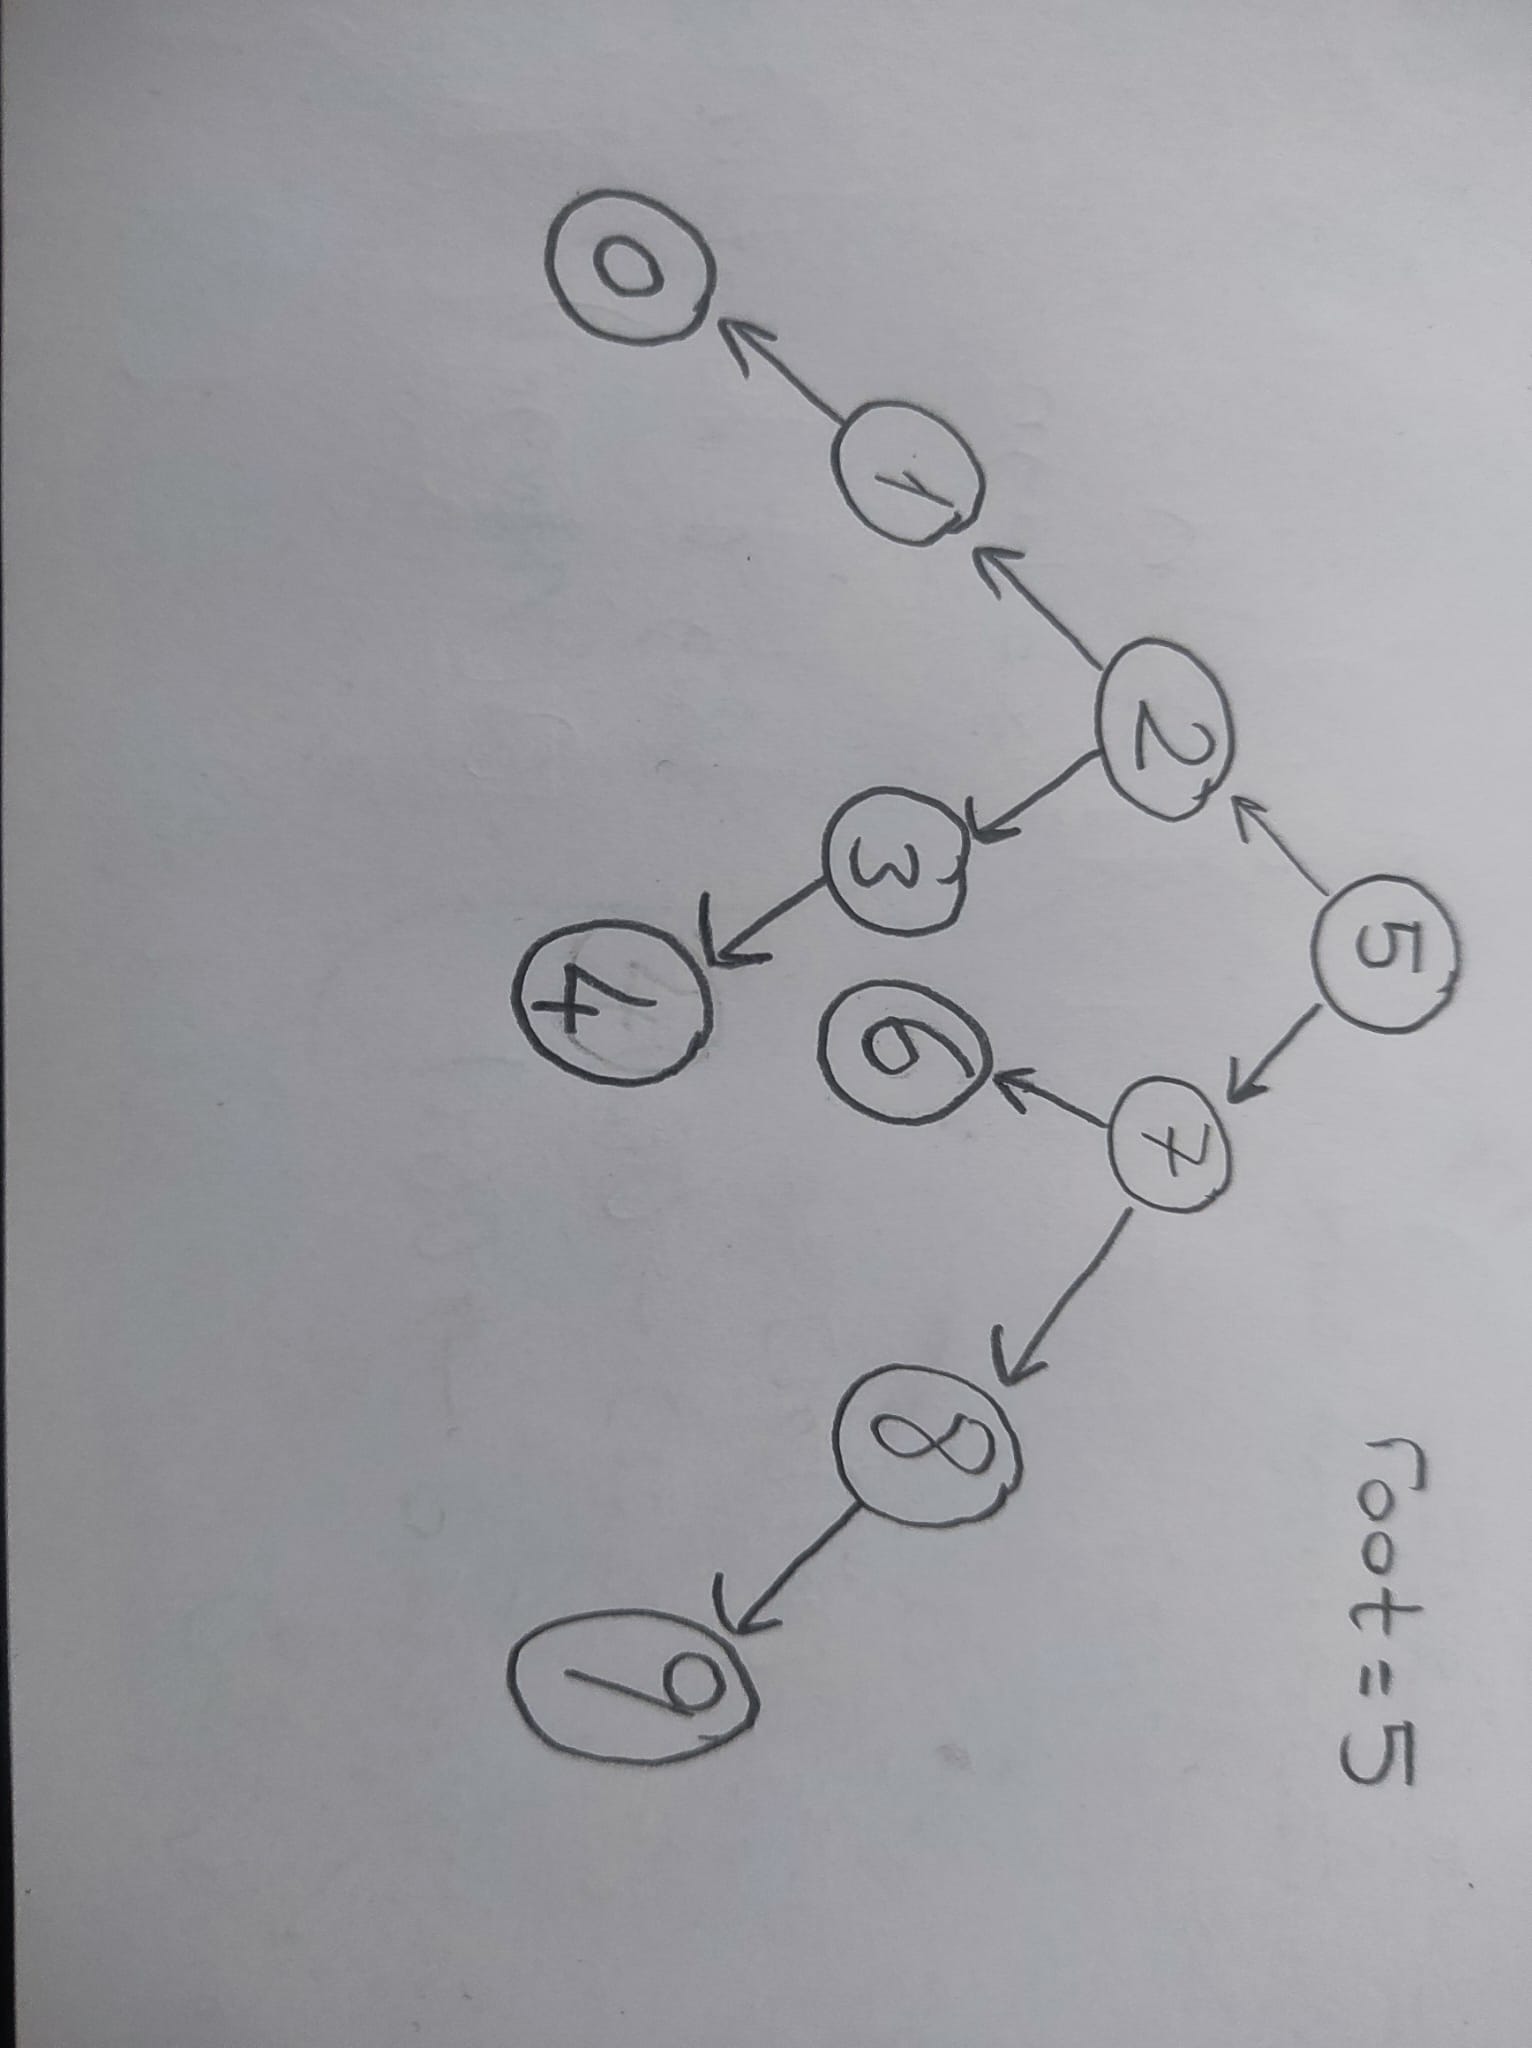 5
root=5
2 7
1 3 6 8
0 4 9